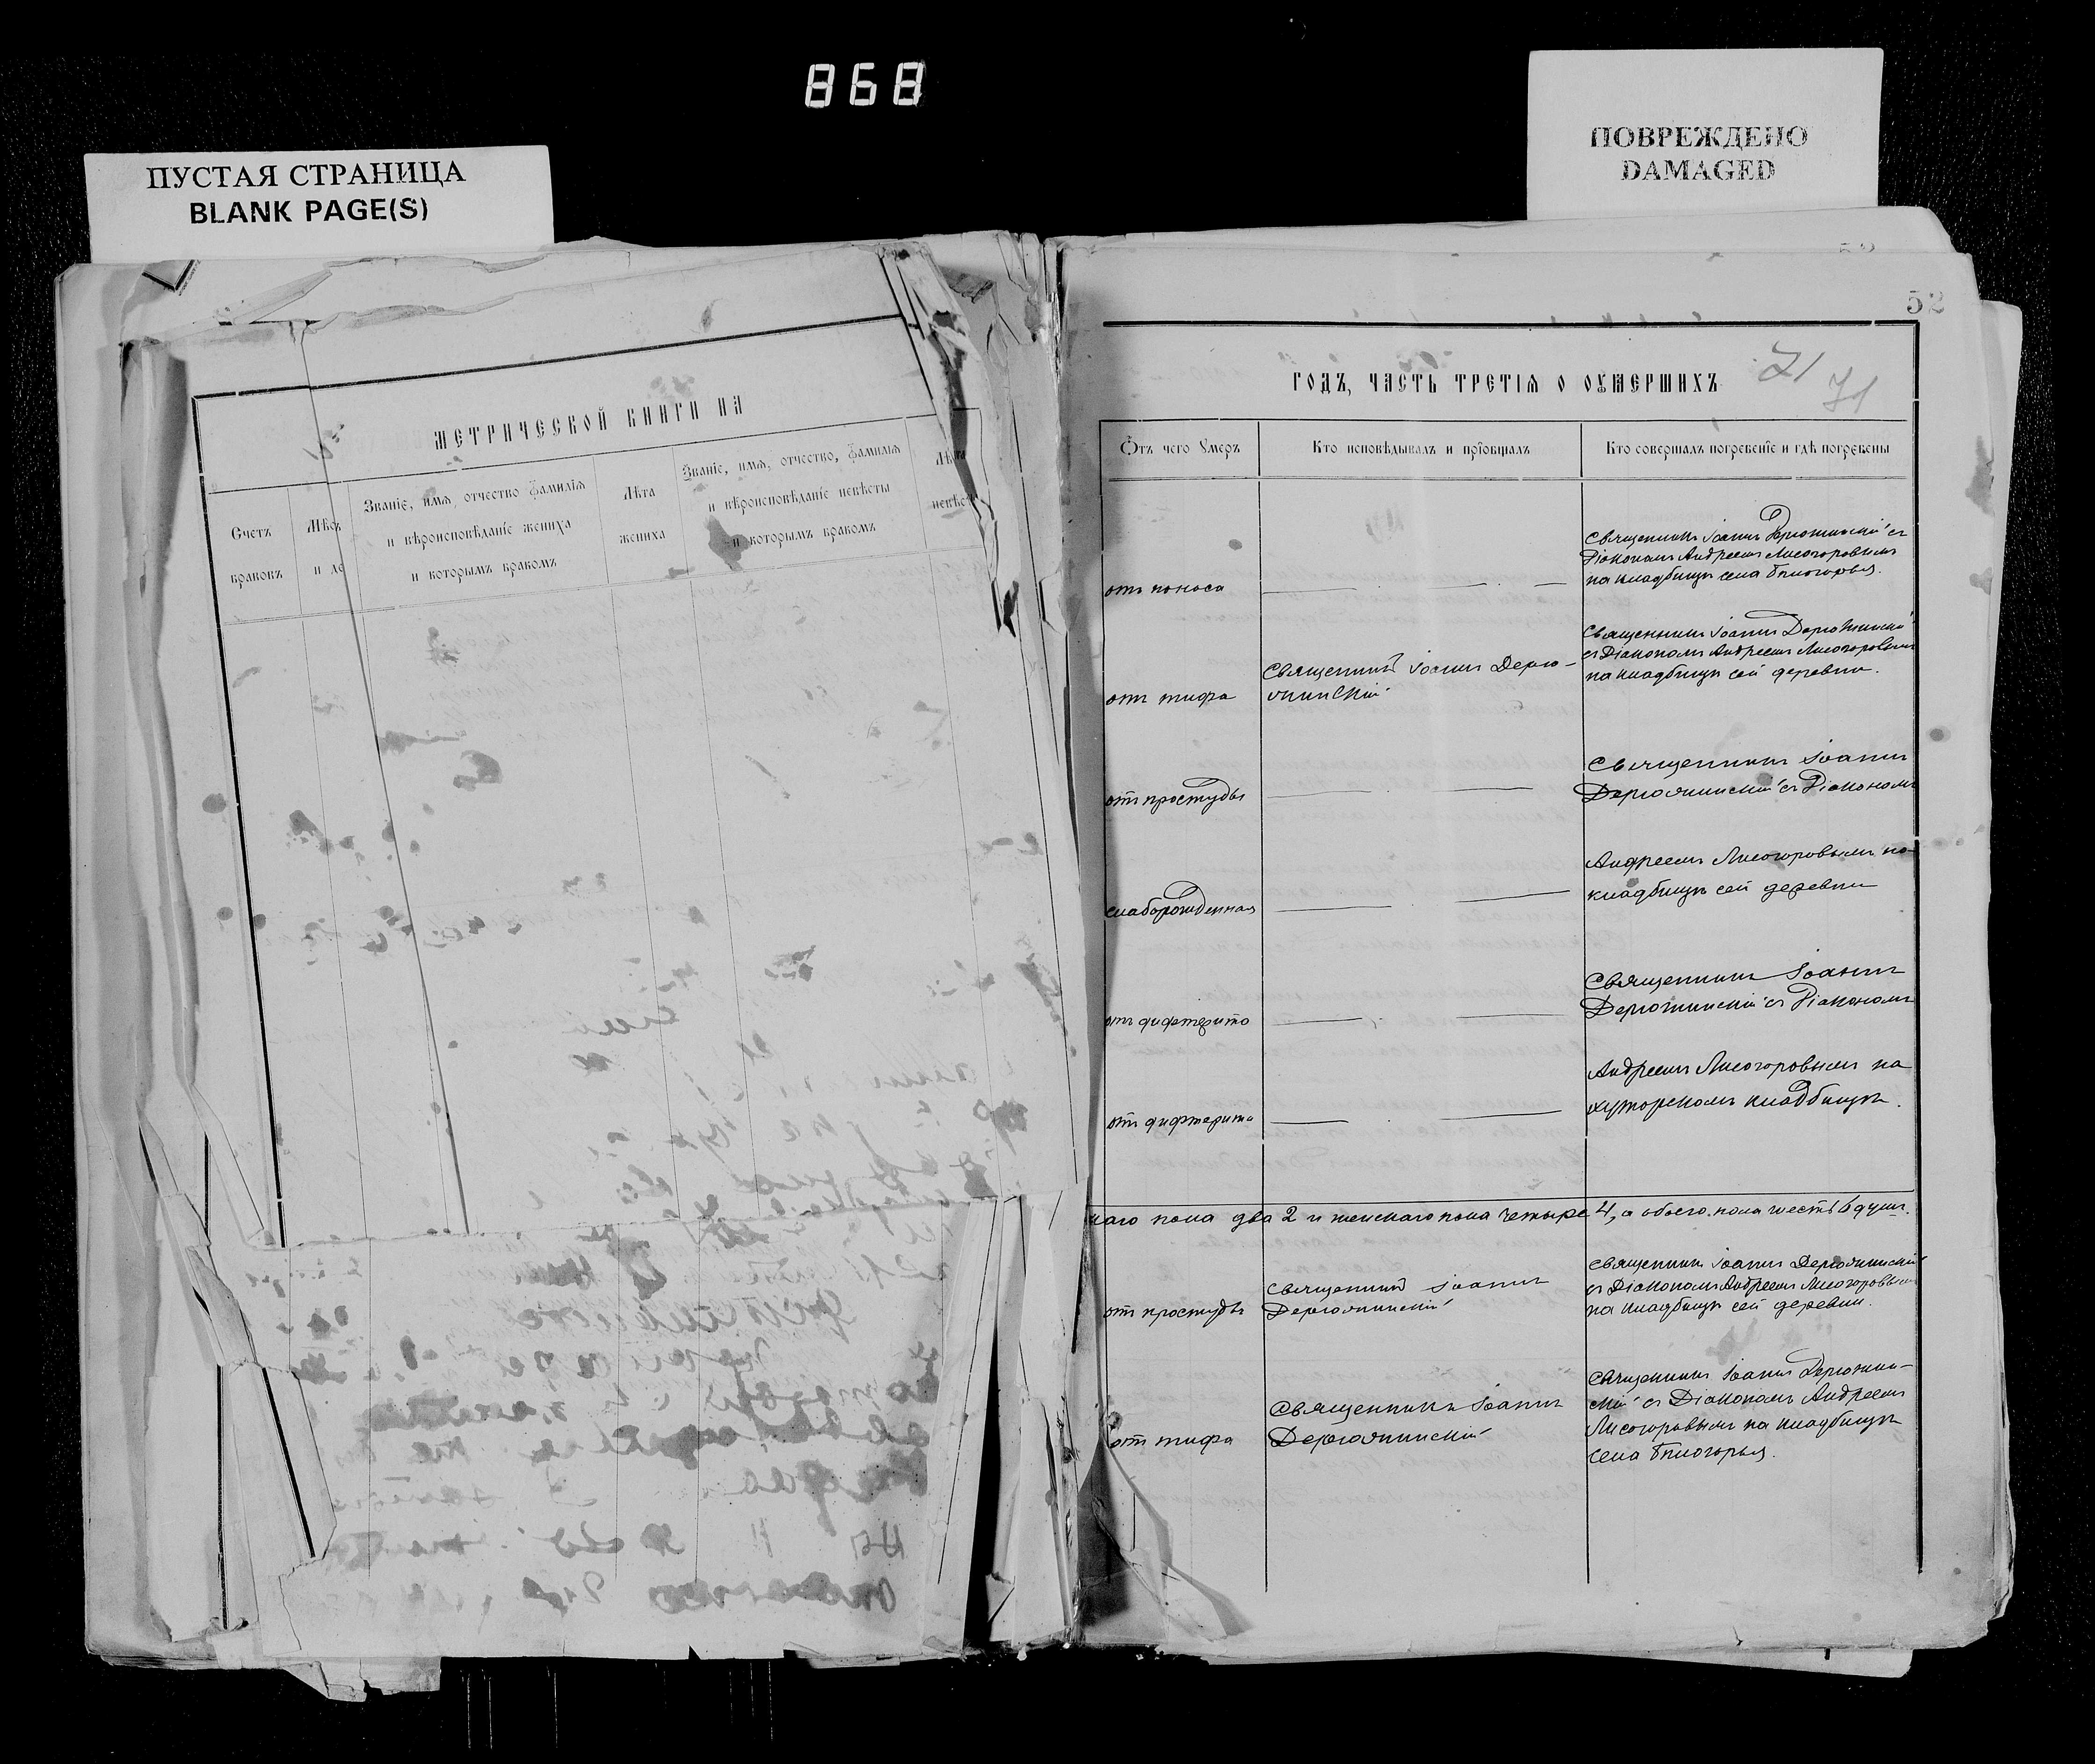 868
ПУСТАЯ СТРАНИЦА
BLANK PAGE(S)
ПОВРЕЖДЕНО
DAMAGED
МЕТРИЧЕСКОЙ КНИГИ НА
Счетъ
браковъ
Мѣс
и де
Званіе, имя, отчество фамилія
и вѣроисповѣданіе жениха
и которымъ бракомъ
Лѣта
жениха
Званіе, имя, отчество, фамилія
и вѣроисповѣданіе невѣсты
и которымъ бракомъ
Лѣта
невѣс
52
ГОДЪ, ЧАСТЬ ТРЕТІЯ О ОУМЕРШИХЪ
71
71
Отъ чего умеръ
Кто исповѣдывалъ и пріобщалъ
Кто совершалъ погребеніе и гдѣ погребены
отъ поноса
Священникъ Іоаннъ Дерюжинскій съ
Діакономъ Андреемъ Лисогоровымъ
на кладбищѣ села
отъ тифа
Священникъ Іоаннъ Дерю-
жинскій
Священникъ Іоаннъ Дерюжинскій
съ Діакономъ Андреемъ Лисогоровымъ
на кладбищѣ сей деревни.
отъ простуды
Священникъ Іоаннъ
Дерюжинскій съ Діакономъ
слаборожденная
Андреемъ Лисогоровымъ на
кладбищѣ сей деревни
отъ дифтерита
Священникъ Іоаннъ
Дерюжинскій съ Діакономъ
отъ дифтерита
Андреемъ Лисогоровымъ на
хуторскомъ кладбищѣ.
наго пола два 2 и женскаго пола четыре 4, а обоего пола шесть 6 душъ.
отъ простуды
Священникъ Іоаннъ
Дерюжинскій
Священникъ Іоаннъ Дерюжинскій
съ Діакономъ Андреемъ Лисогоровымъ
на кладбищѣ сей деревни.
отъ тифа
Священникъ Іоаннъ
Дерюжинскій
Священникъ Іоаннъ Дерюжин-
скій съ Діакономъ Андреемъ
Лисогоровымъ на кладбищѣ
села